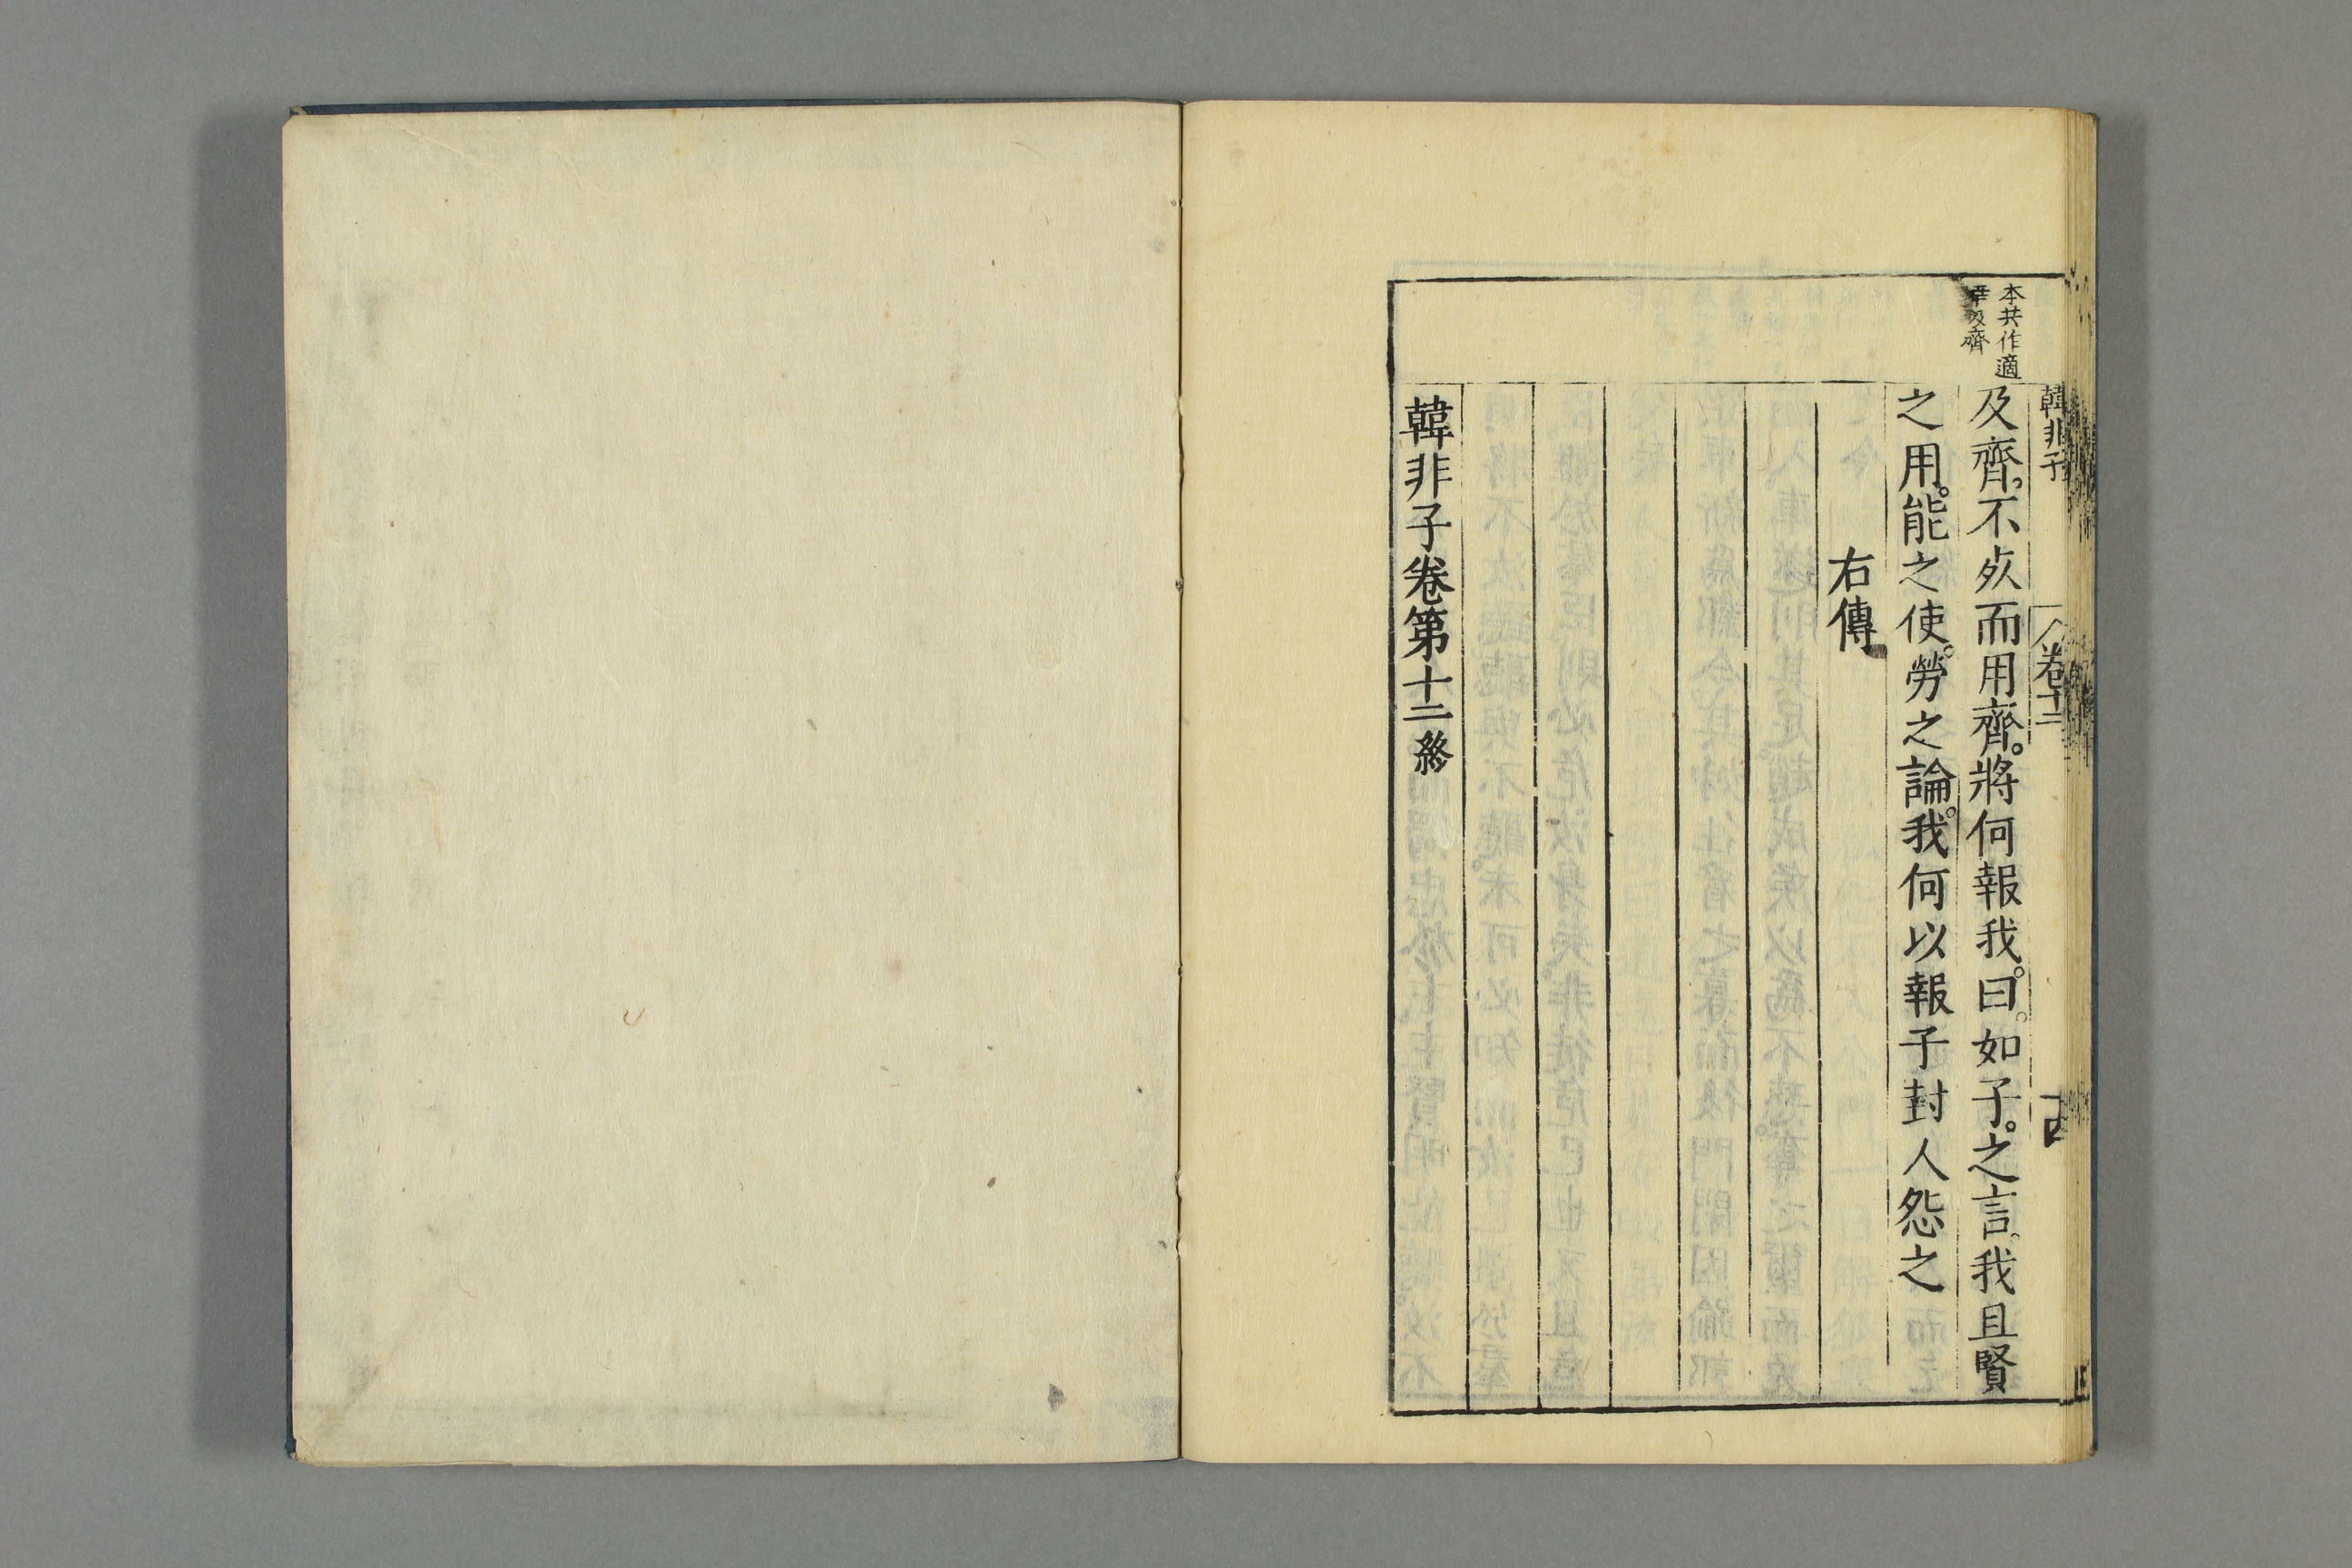 韓非子
卷十二
本共作適
幸及齊
及齊。不死而用齊。將何報我。曰。如子。之言。我且賢
之用。能之使。勞之論。我何以報子封人怨之
右傳
韓非子卷第十二終